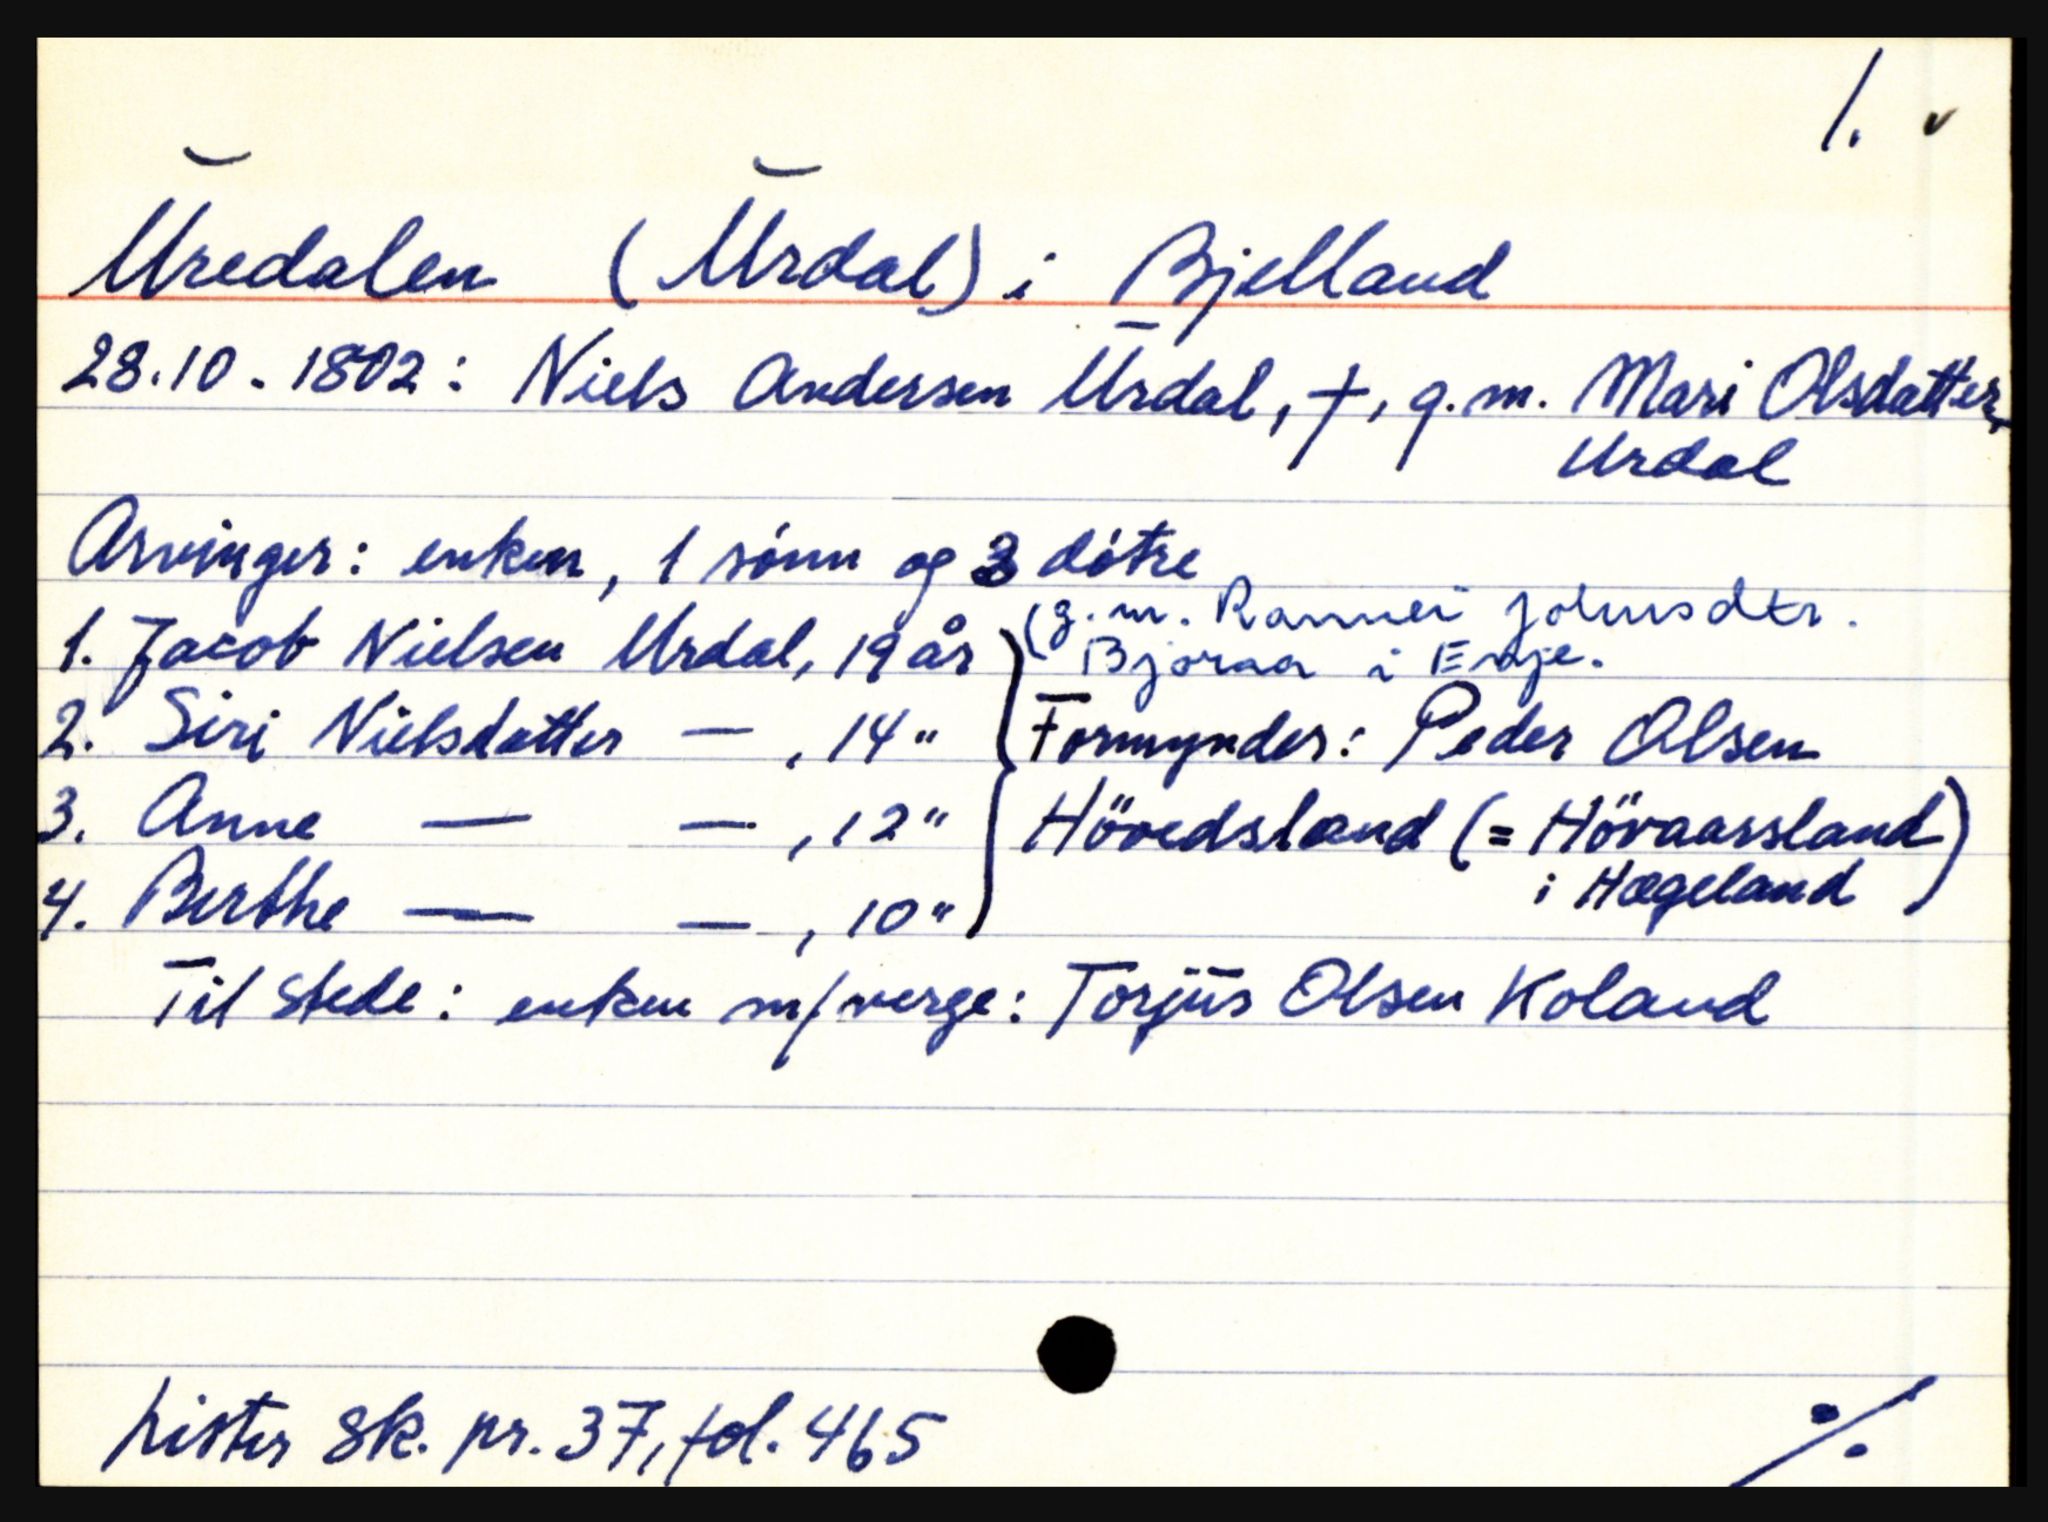 1. v
Uredalen (Urdal) i Bjelland
28.10. 1802: Niels Andersen Urdal, †, g.m. Mari Olsdatter
Urdal
Arvinger: enken, 1 sønn og 3 døtre
1. Jacob Nielsen Urdal, 19 år (g.m. Rannei Johnsdtr.
Bjoraa i Evje.
2. Siri Nielsdatter — , 14 " Formynder: Peder Olsen
3. Anne — — , 12 " Hövedsland (= Hövaarsland)
i Hægeland
4. Berthe — — , 10 "
Til stede: enken m/verge: Torjus Olsen Koland
Lister sk. pr. 37, fol. 465
./.